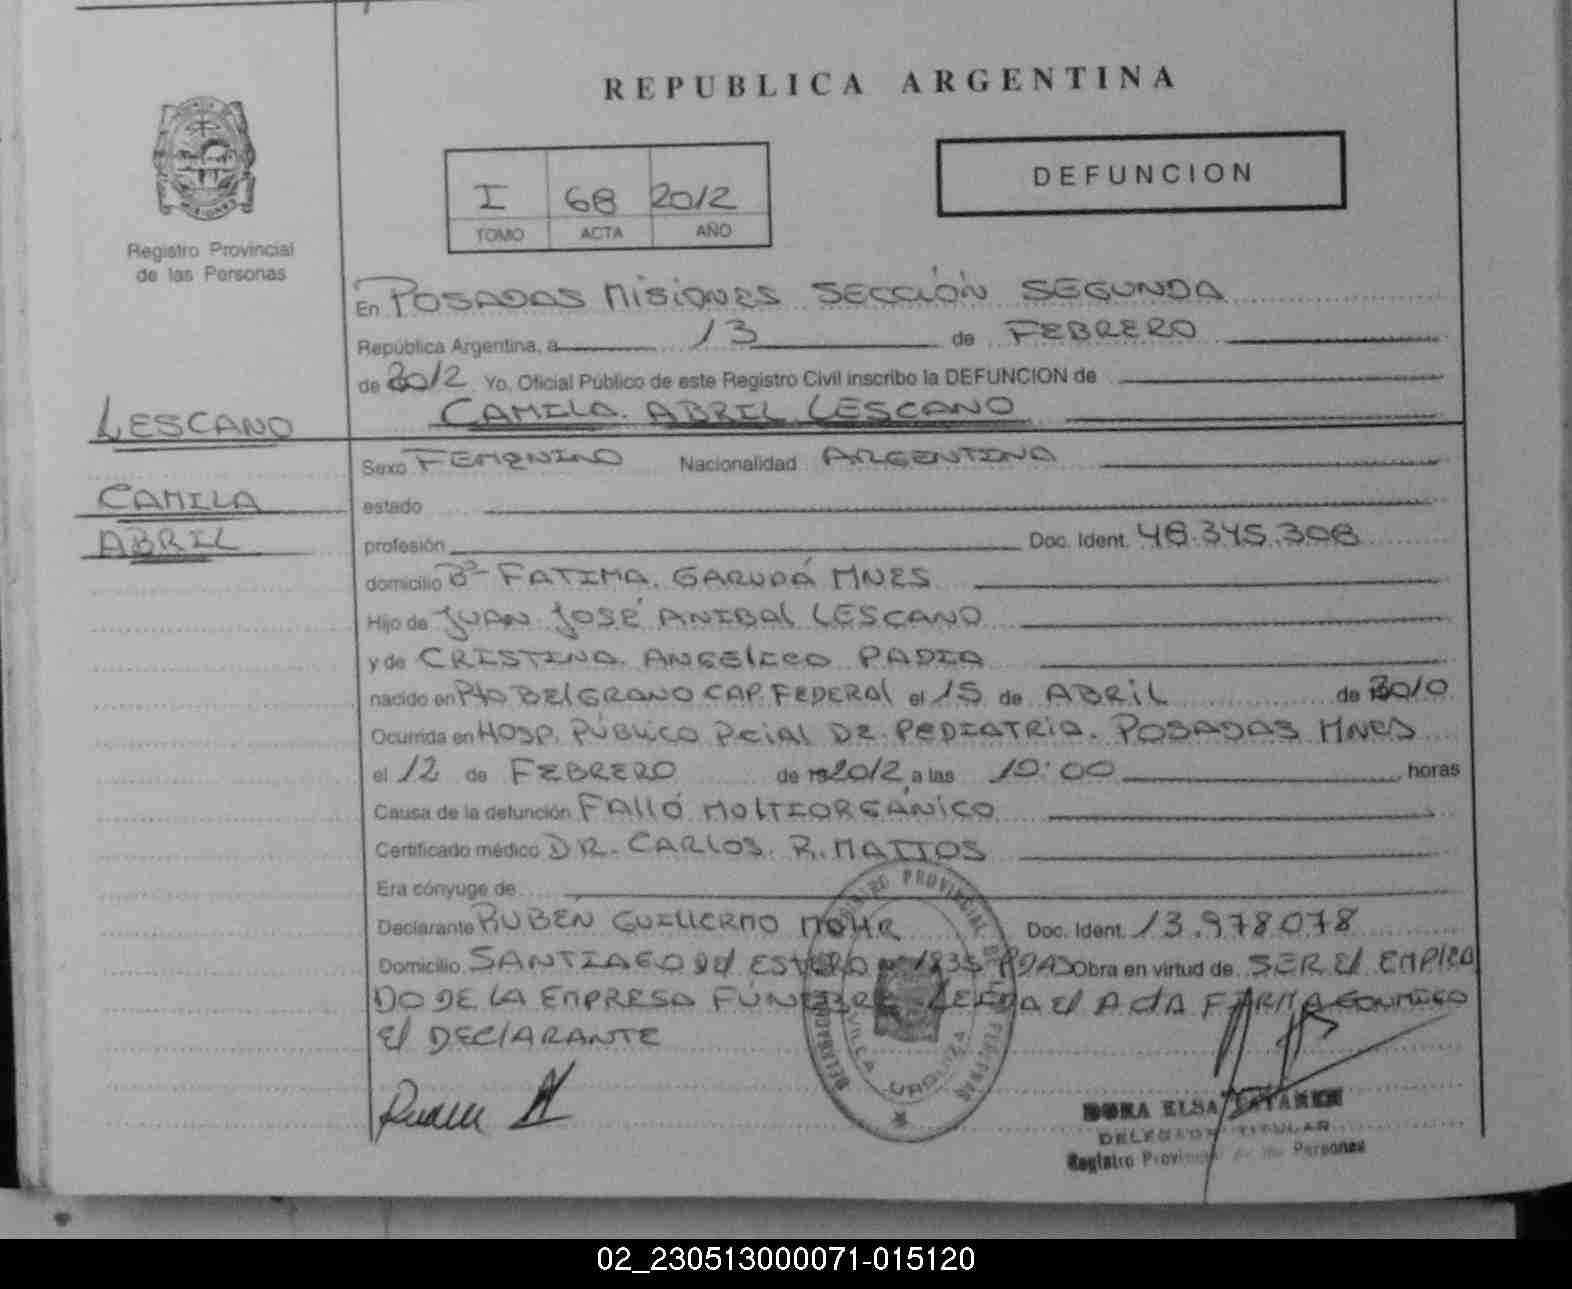 REPUBLICA ARGENTINA
DEFUNCION
I 68 2012
TOMO ACTA AÑO
Registro Provincial
de las Personas
En POSADAS MISIONES SECCIÓN SEGUNDA
República Argentina, a 13 de FEBRERO
de 2012 Yo, Oficial Público de este Registro Civil inscribo la DEFUNCION de
CAMILA ABRIL LESCANO
LESCANO
CAMILA
ABRIL
Sexo FEMENINO Nacionalidad ARGENTINA
estado
profesión Doc. Ident. 48.345.308
domicilio Bº FATIMA. GARUPÁ MNES
Hijo de JUAN JOSÉ ANIBAL LESCANO
y de CRISTINA ANGELICA PADIA
nacido en Pto BELGRANO CAP. FEDERAL el 15 de ABRIL de 2010
Ocurrida en HOSP. PÚBLICO PCIAL DE PEDIATRIA. POSADAS MNES
el 12 de FEBRERO de 2012 a las 10:00 horas
Causa de la defunción FALLÓ MULTIORGÁNICO
Certificado médico DR. CARLOS. R. MATTOS
Era cónyuge de
Declarante RUBEN GUILLERMO MOHR Doc. Ident. 13.978.078
Domicilio SANTIAGO del ESTERO Obra en virtud de SER El EMPLEA
DO DE LA EMPRESA FÚNEBRE LEIDA El ACTA FIRMA CONMIGO
El DECLARANTE
REGISTRO PROVINCIAL DE LAS PERSONAS
DELEGACION
VILLA URQUIZA
DORA ELSA
DELEGADA TITULAR
Registro Provincial de las Personas
02_230513000071-015120